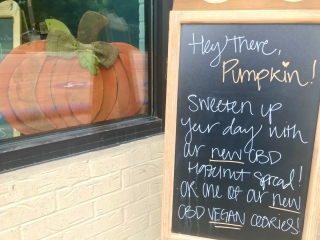 Hey There,
Pumpkin!
Sweeten up
your day with
our new CBD
Hazelnut spread!
OR one of our new
CBD VEGAN COOKIES!